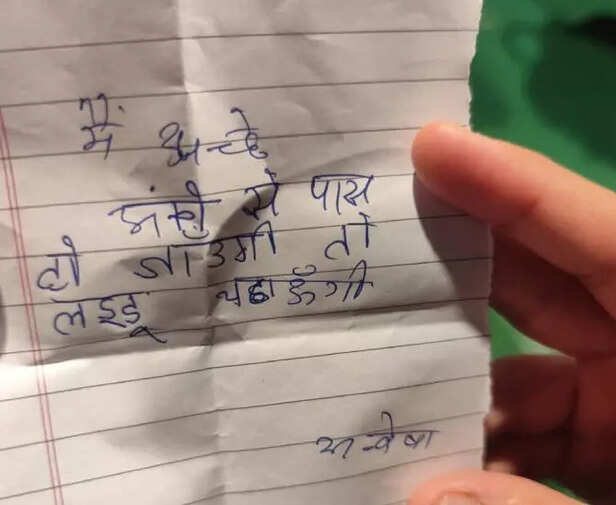 मैं अच्छे
अंकों से पास
हो जाउगी तो
लड्डू चढाऊँगी
अन्वेषा